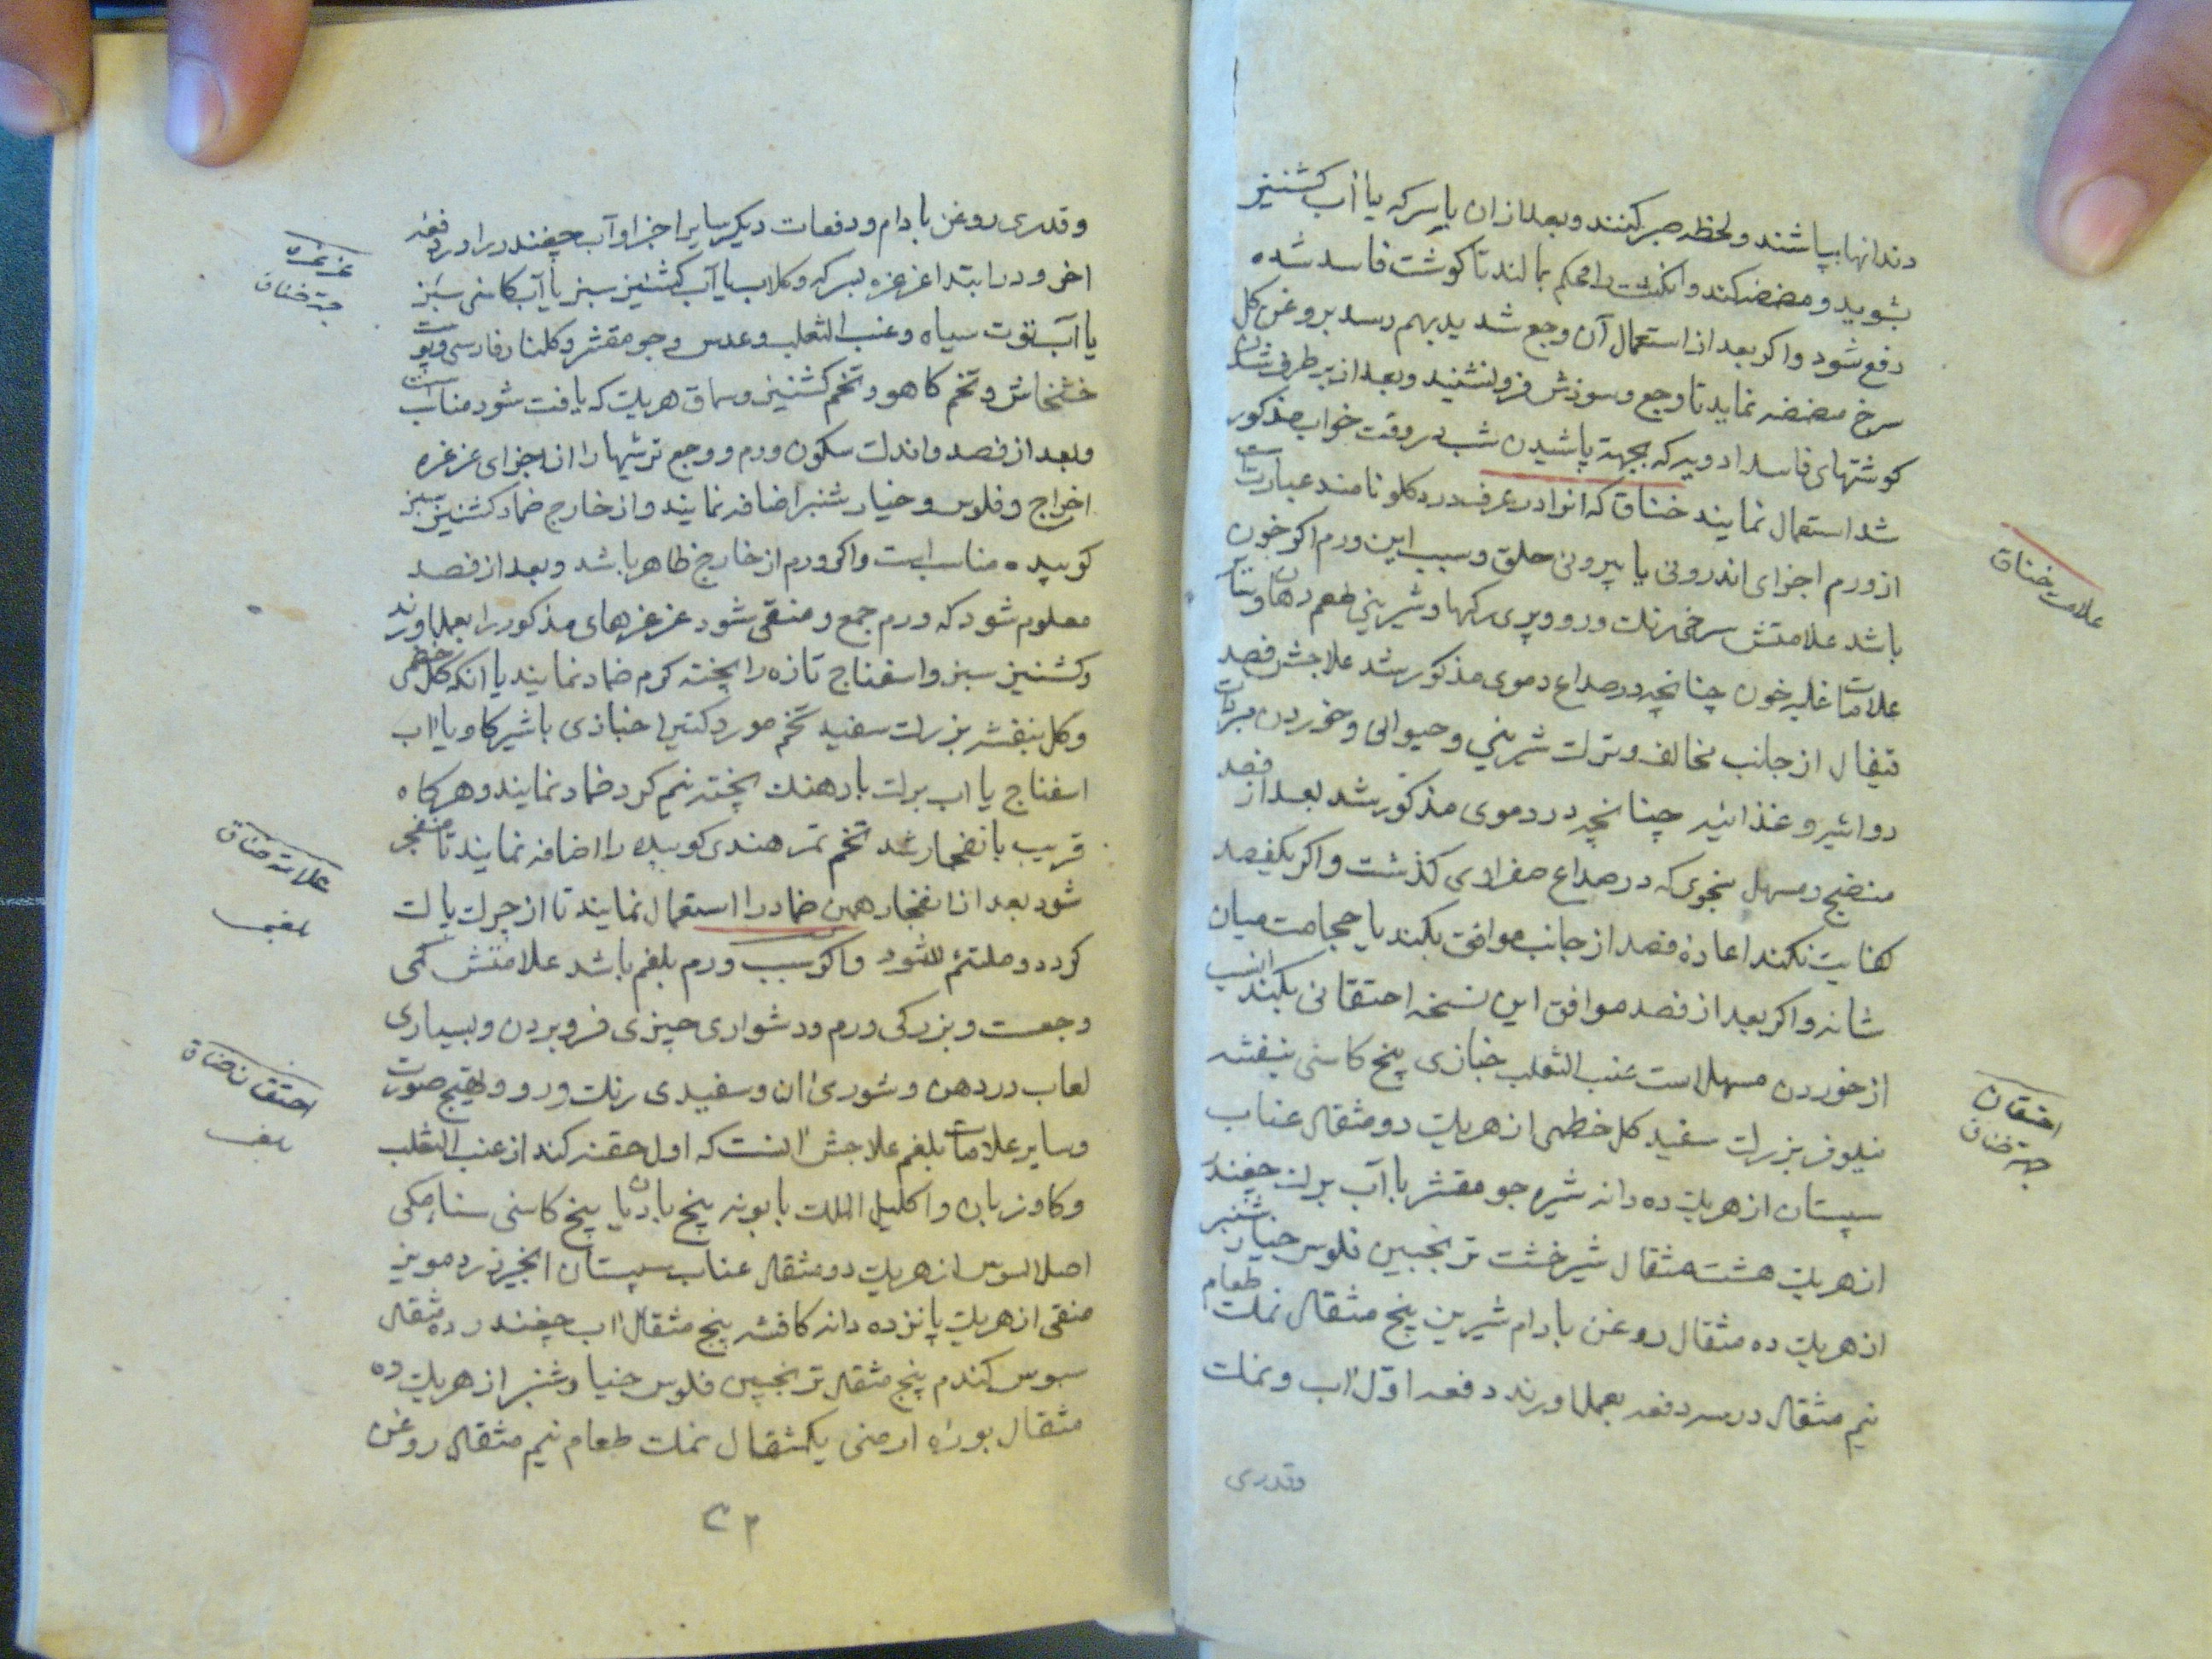 دندانها بپاشند و لحظه صبر کنند و بعد از ان با سرکه یا آب کشنیز
بشوید و مضمضه کند و انکشت را محکم بمالند تا کوشت فاسد شده
دفع شود و اکر بعد از استعمال آن وجع شدید بهم رسد بروغن کل
سرخ مضمضه نماید تا وجع و سوزش فرو نشیند و بعد از بر طرف شدن
کوشتهای فاسد ادویه که بجهة پاشیدن شب در وقت خواب مذکور
شد استعمال نمایند خناق که انرا در عرف درد کلو نامند عبارتست
از ورم اجزای اندرونی یا بیرونی حلق و سبب این ورم اکر خون
باشد علامتش سرخی رنک و رو و پری رکها و شیرینی طعم دهان و سایر
علامات غلبه خون چنانچه در صداع دموی مذکور شد علاجش فصد
قیفال از جانب مخالف و ترک شیرینی و حیوانی و خوردن مبردات
دوائیه و غذائیه چنانچه در دموی مذکور شد بعد از فصد
منضج و مسهل بنحوی که در صداع صفراوی کذشت و اکر یکفصد
کفایت نکند اعادهٔ فصد از جانب موافق بکند یا حجامت میان
شانه و اکر بعد از فصد موافق این نسخه احتقانی بکند انسب
از خوردن مسهل است عنب الثعلب خبازی بیخ کاسنی بنفشه
نیلوفر بزرک سفید کل خطمی از هریک دو مثقال عناب
سپستان از هریک ده دانه شیره جو مقشر با آب برک چغندر
از هریک هشت مثقال شیرخشت ترنجبین فلوس خیار شنبر
از هریک ده مثقال روغن بادام شیرین پنج مثقال نمک طعام
نیم مثقال در سه دفعه بعمل اورند دفعه اوّل اب و نمک
وقدری
علامت خناق
احتقان
جهة خناق
و قدری روغن بادام و دفعات دیکر سایر اجزا و آب چغندر را در دفعه
اخر و در ابتدا غرغره بسرکه و کلاب یا آب کشنیز سبز یا آب کاسنی سبز
یا آب توت سیاه و عنب الثعلب و عدس و جو مقشر و کلنار فارسی و پوست
خشخاش و تخم کاهو و تخم کشنیز و سماق هریک که یافت شود مناسب است
و بعد از فصد و اندک سکون ورم و وجع ترشیها را از اجزای غرغره
اخراج و فلوس و خیار شنبر اضافه نمایند و از خارج ضماد کشنیز سبز
کوبیده مناسب است و اکر ورم از خارج ظاهر باشد و بعد از فصد
معلوم شود که ورم جمع و منقی شود غرغرهای مذکور را بعمل اورند
و کشنیز سبز و اسفناج تازه را پخته کرم ضماد نمایند یا انکه کل خطمی
و کل بنفشه بزرک سفید تخم مورد کتیرا خبازی با شیر کاو یا اب
اسفناج یا اب برک بارهنک پخته نیم کرد ضماد نمایند و هرکاه
قریب بانفجار شد تخم تمر هندی کوبیده را اضافه نمایند تا منفجر
شود بعد از انفجار همین ضماد را استعمال نمایند تا از چرک پاک
کردد و ملتئم شود و اکر سبب ورم بلغم باشد علامتش کمی
وجعست و بزرکی ورم و دشواری چیزی فرو بردن و بسیاری
لعاب در دهن و شوری ان و سفیدی رنک و رو و تهیج صورت
و سایر علامات بلغم علاجش انست که اول حقنه کند از عنب الثعلب
و کاو زبان و اکلیل الملک بابونه بیخ بادیان بیخ کاسنی سنا مکی
اصل السوس از هریک دو مثقال عناب سپستان انجیر زرد مویز
منقی از هریک پانزده دانه کافشه پنج مثقال اب چغندر ده مثقال
سبوس کندم پنج مثقال ترنجبین فلوس خیار شنبر از هریک ده
مثقال بوره ارمنی یکمثقال نمک طعام نیم مثقال روغن
غرغره
جهة خناق
علامة خناق
بلغمی
احتقان خناق
بلغمی